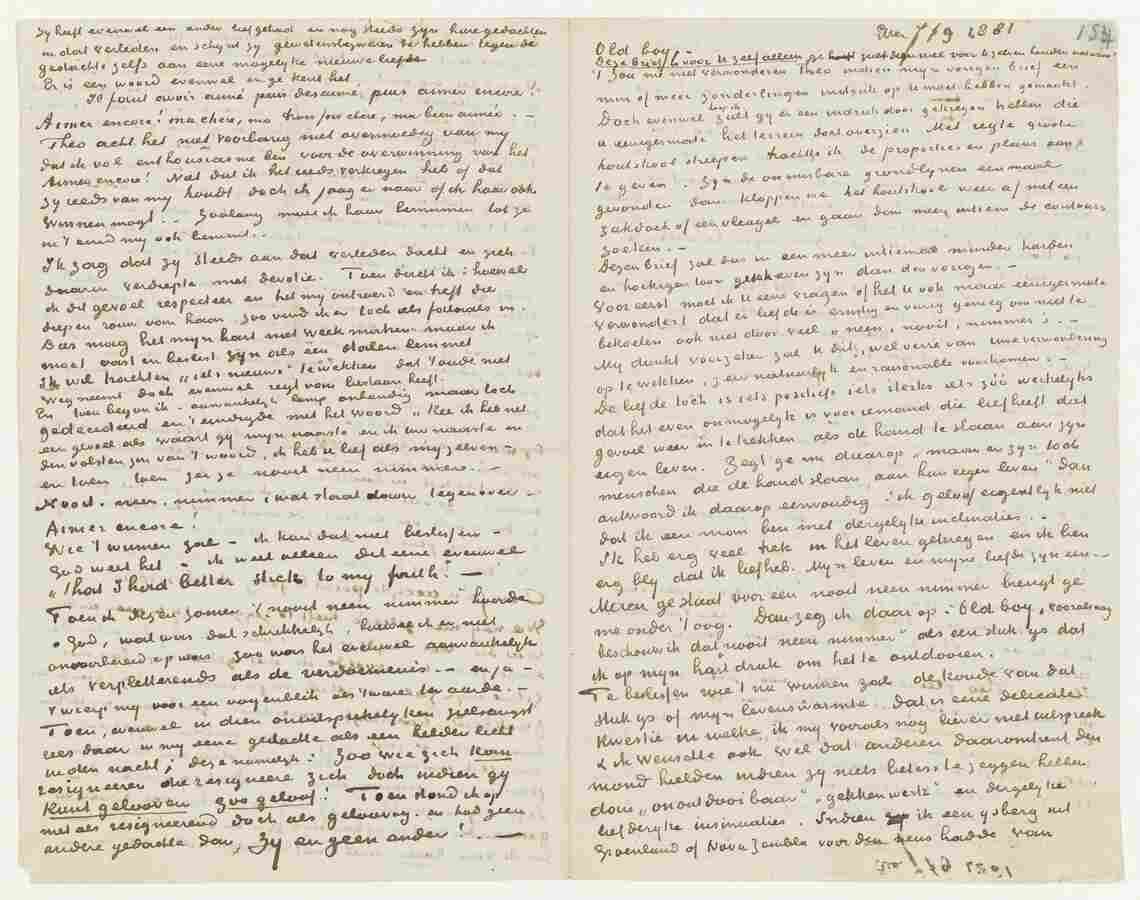 Zy heeft evenwel een ander liefgehad en nog steeds zyn hare gedachten
in dat verleden en schynt zy gewetensbezwaren te hebben tegen de
gedachte zelfs aan eene mogelyke nieuwe liefde
Er is een woord evenwel en ge kent het
Il faut avoir aimé, puis désaimé, puis aimer encore!
Aimer encore! ma chère, ma trois fois chère, ma bien aimée. –
Theo acht het niet voorbarig niet overmoedig van my
dat ik vol enthousiasme ben voor de overwinning van het
Aimer encore! Niet dat ik het reeds verkregen heb of dat
zy reeds van my houdt doch ik jaag er naar of ik haar ook
winnen mogt. – Zoolang moet ik haar beminnen tot ze
m't eind my ook bemint. –
Ik zag dat zy steeds aan dat verleden dacht en zich
daarin verdiepte met devotie. Toen dacht ik: hoewel
ik dit gevoel respecteer en het my ontroerd en treft die
diepen rouw van haar zoo vind ik er toch iets fataals in.
Dus mag het myn hart niet week maken maar ik
moet vast en beslist zyn als een stalen lemmet
Ik wil trachten „iets nieuws” te wekken dat 't oude niet
wegneemt doch evenwel regt van bestaan heeft.
En toen begon ik – aanvankelyk lomp onhandig maar toch
gedecideerd en 't eindigde met het woord „Kee ik heb net
een gevoel als waart gy myn naaste en ik uw naaste en
den volsten zin van 't woord, ik heb u lief als my zelven –
en toen, toen zei ze nooit neen nimmer. –
Nooit, neen, nimmer; wat staat daar tegenover –
Aimer encore!
Wie 't winnen zal – ik kan dat niet beslissen –
God weet het – ik weet alleen dit eene evenwel
„That I had better stick to my faith.” –
Toen ik dezen zomer 't „nooit neen nimmer” hoorde
o God, wat was dat schrikkelyk, hoewel ik er niet
onvoorbereid op was zoo was het evenwel aanvankelyk
iets verpletterends als de verdoemenis. – en ja –
't wierp my voor een oogenblik als 't ware ter aarde. –
Toen, evenwel in dien onuitsprekelyken zielsangst
rees daar in my eene gedachte als een helder licht
in den nacht, deze namelyk: Zoo wie zich kan
resigneeren die resigneere zich doch indien gy
kunt gelooven zoo geloof! Toen stond ik op
niet als resigneerend doch als geloovig en had geen
andere gedachte dan, Zy en geen ander! –
Etten 7/9 1881
154
Old boy –
Deze brief is voor U zelf alleen ge zult dien wel voor U zelven houden nietwaar?
't Zou me niet verwonderen Theo indien myn vorigen brief een
min of meer zonderlingen indruk op u moet hebben gemaakt.
Doch evenwel hoop ik zult gy er een indruk door gekregen hebben die
u eenigermate het terrein doet overzien. Met regte groote
houtskool streepen trachtte ik de proporties en plans aan
te geven. Zyn de onmisbare grondlynen eenmaal
gevonden dan kloppen we het houtskool weer af met een
zakdoek of een vleugel en gaan dan meer intieme de contours
zoeken. –
Dezen brief zal dus in een meer intiemen minder harden
en hoekigen toon geschreven zyn dan den vorigen. –
Vooreerst moet ik U eens vragen of het U ook maar eenigermate
verwondert dat er liefde is ernstig en vurig genoeg om niet te
bekoelen ook niet door veel „neen, nooit, nimmer”. –
My dunkt voorzeker zal U dit, wel verre van uwe verwondering
op te wekken, zeer natuurlyk en raisonable voorkomen. –
De liefde toch is iets positiefs iets sterks iets zóó werkelyks
dat het even onmogelyk is voor iemand die liefheeft dit
gevoel weer in te trekken als de hand te slaan aan zyn
eigen leven. Zegt ge me daarop „maar er zyn toch
menschen die de hand slaan aan hun eigen leven” dan
antwoord ik daarop eenvoudig: ik geloof eigentlyk niet
dat ik een man ben met dergelyke inclinaties. –
Ik heb erg veel trek in het leven gekregen en ik ben
erg bly dat ik liefheb. Myn leven en myne liefde zyn een –
Maar ge staat voor een nooit neen nimmer brengt ge
me onder 't oog. Dan zeg ik daarop: Old boy, vooralsnog
beschouw ik dat „nooit neen nimmer” als een stuk ys dat
ik op myn hart druk om het te ontdooien.
Te beslissen wie 't nu winnen zal de koude van dat
stuk ys of myn levenswarmte. Dat is eene delicate
kwestie in welke ik my vooralsnog liever niet uitspreek
& ik wenschte ook wel dat anderen daaromtrent den
mond hielden indien zy niets beters te zeggen hebben
dan „onontdooibaar”, „gekkenwerk” en dergelyke
liefderyke insinuaties. Indien ik een ysberg uit
Groenland of Nova Zembla voor den neus hadde van